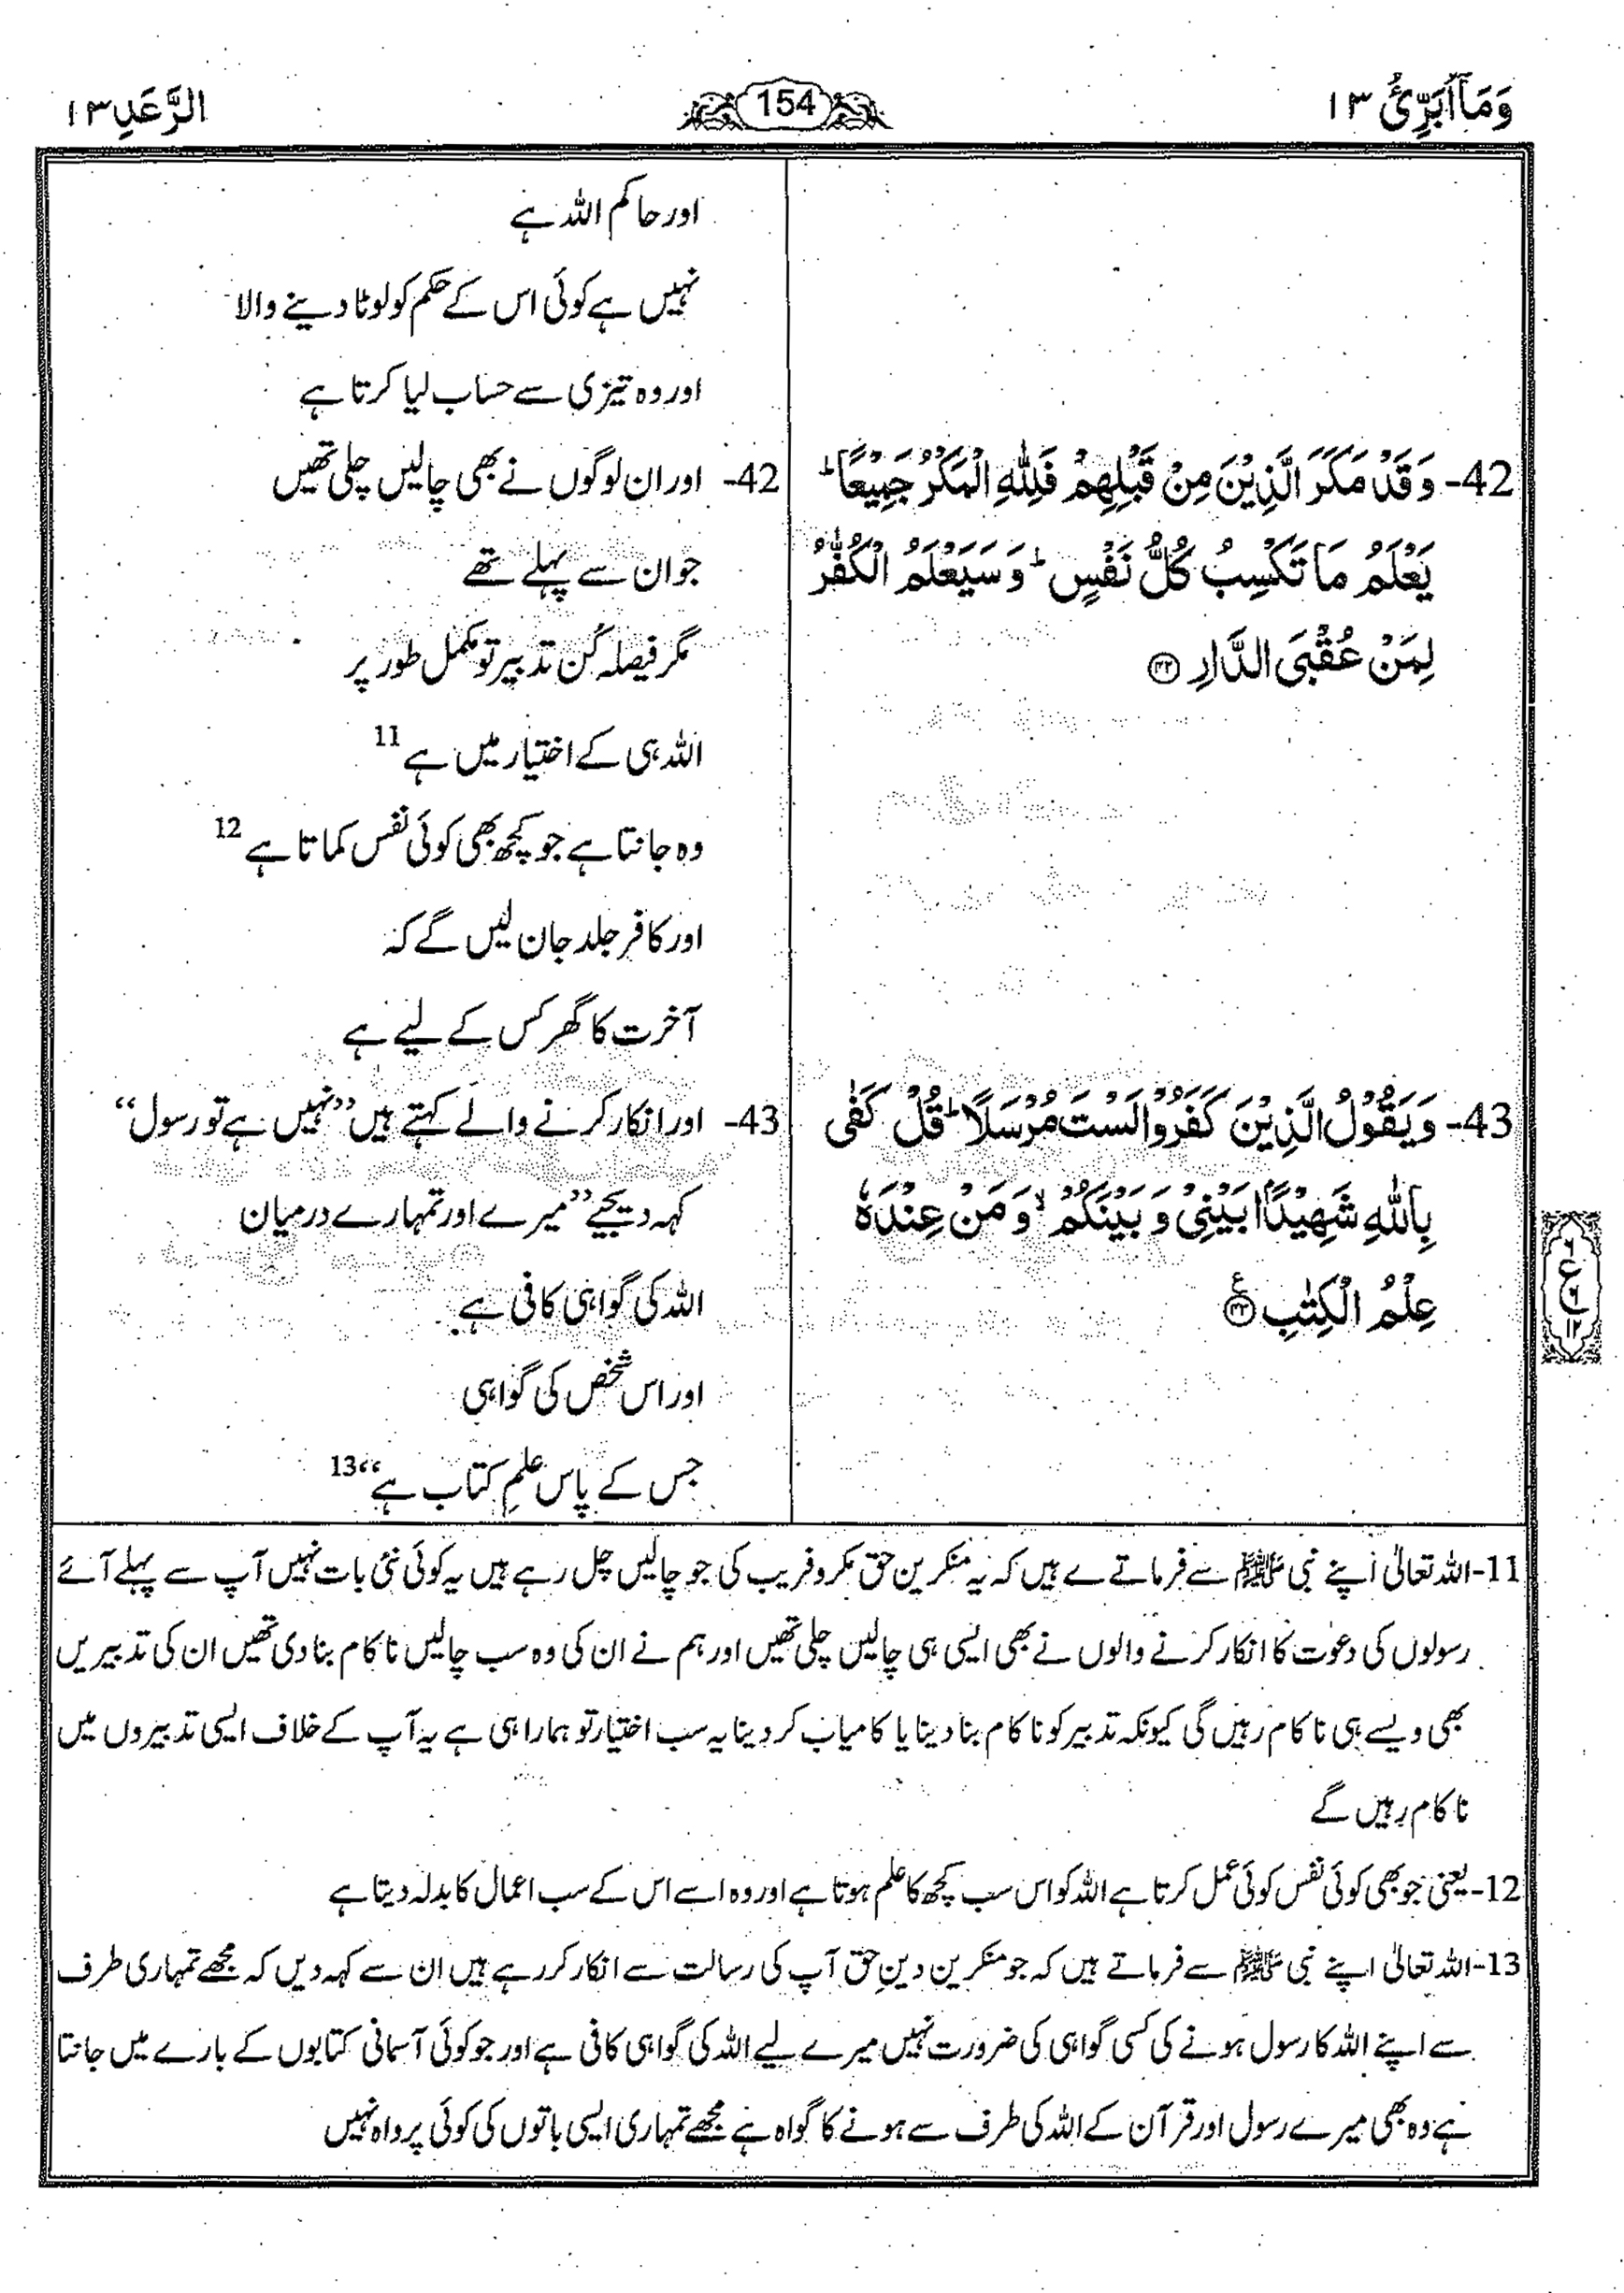 وَمَآ اُبَرِّئُ ۱۳
154
الرَّعَدِ ۱۳
اور حاکم اللہ ہے
نہیں ہے کوئی اس کے حکم کو لوٹا دینے والا
اور وہ تیزی سے حساب لیا کرتا ہے
42- وَقَدْ مَكَرَ الَّذِيْنَ مِنْ قَبْلِهِمْ فَلِلّٰهِ الْمَكْرُ جَمِيْعًا ؕ
يَعْلَمُ مَا تَكْسِبُ كُلُّ نَفْسٍ ؕ وَسَيَعْلَمُ الْكُفّٰرُ
لِمَنْ عُقْبَى الدَّارِ ۝۴۲
42- اور ان لوگوں نے بھی چالیں چلی تھیں
جو ان سے پہلے تھے
مگر فیصلہ کُن تدبیر تو مکمل طور پر
اللہ ہی کے اختیار میں ہے 11
وہ جانتا ہے جو کچھ بھی کوئی نفس کماتا ہے 12
اور کافر جلد جان لیں گے کہ
آخرت کا گھر کس کے لیے ہے
43- وَيَقُوْلُ الَّذِيْنَ كَفَرُوْا لَسْتَ مُرْسَلًا ؕ قُلْ كَفٰى
بِاللّٰهِ شَهِيْدًۢا بَيْنِيْ وَبَيْنَكُمْ ۙ وَمَنْ عِنْدَهٗ
عِلْمُ الْكِتٰبِ ۝۴۳ ع
43- اور انکار کرنے والے کہتے ہیں ”نہیں ہے تو رسول“
کہہ دیجیے ”میرے اور تمہارے درمیان
اللہ کی گواہی کافی ہے
اور اس شخص کی گواہی
جس کے پاس علمِ کتاب ہے“ 13
11- اللہ تعالیٰ اپنے نبی ﷺ سے فرماتے ہیں کہ یہ منکرین حق مکر و فریب کی جو چالیں چل رہے ہیں یہ کوئی نئی بات نہیں آپ سے پہلے آئے
رسولوں کی دعوت کا انکار کرنے والوں نے بھی ایسی ہی چالیں چلی تھیں اور ہم نے ان کی وہ سب چالیں ناکام بنا دی تھیں ان کی تدبیریں
بھی ویسے ہی ناکام رہیں گی کیونکہ تدبیر کو ناکام بنا دینا یا کامیاب کر دینا یہ سب اختیار تو ہمارا ہی ہے یہ آپ کے خلاف ایسی تدبیروں میں
ناکام رہیں گے
12- یعنی جو بھی کوئی نفس کوئی عمل کرتا ہے اللہ کو اس سب کچھ کا علم ہوتا ہے اور وہ اسے اس کے سب اعمال کا بدلہ دیتا ہے
13- اللہ تعالیٰ اپنے نبی ﷺ سے فرماتے ہیں کہ جو منکرین دینِ حق آپ کی رسالت سے انکار کر رہے ہیں ان سے کہہ دیں کہ مجھے تمہاری طرف
سے اپنے اللہ کا رسول ہونے کی کسی گواہی کی ضرورت نہیں میرے لیے اللہ کی گواہی کافی ہے اور جو کوئی آسمانی کتابوں کے بارے میں جانتا
ہے وہ بھی میرے رسول اور قرآن کے اللہ کی طرف سے ہونے کا گواہ ہے مجھے تمہاری ایسی باتوں کی کوئی پرواہ نہیں